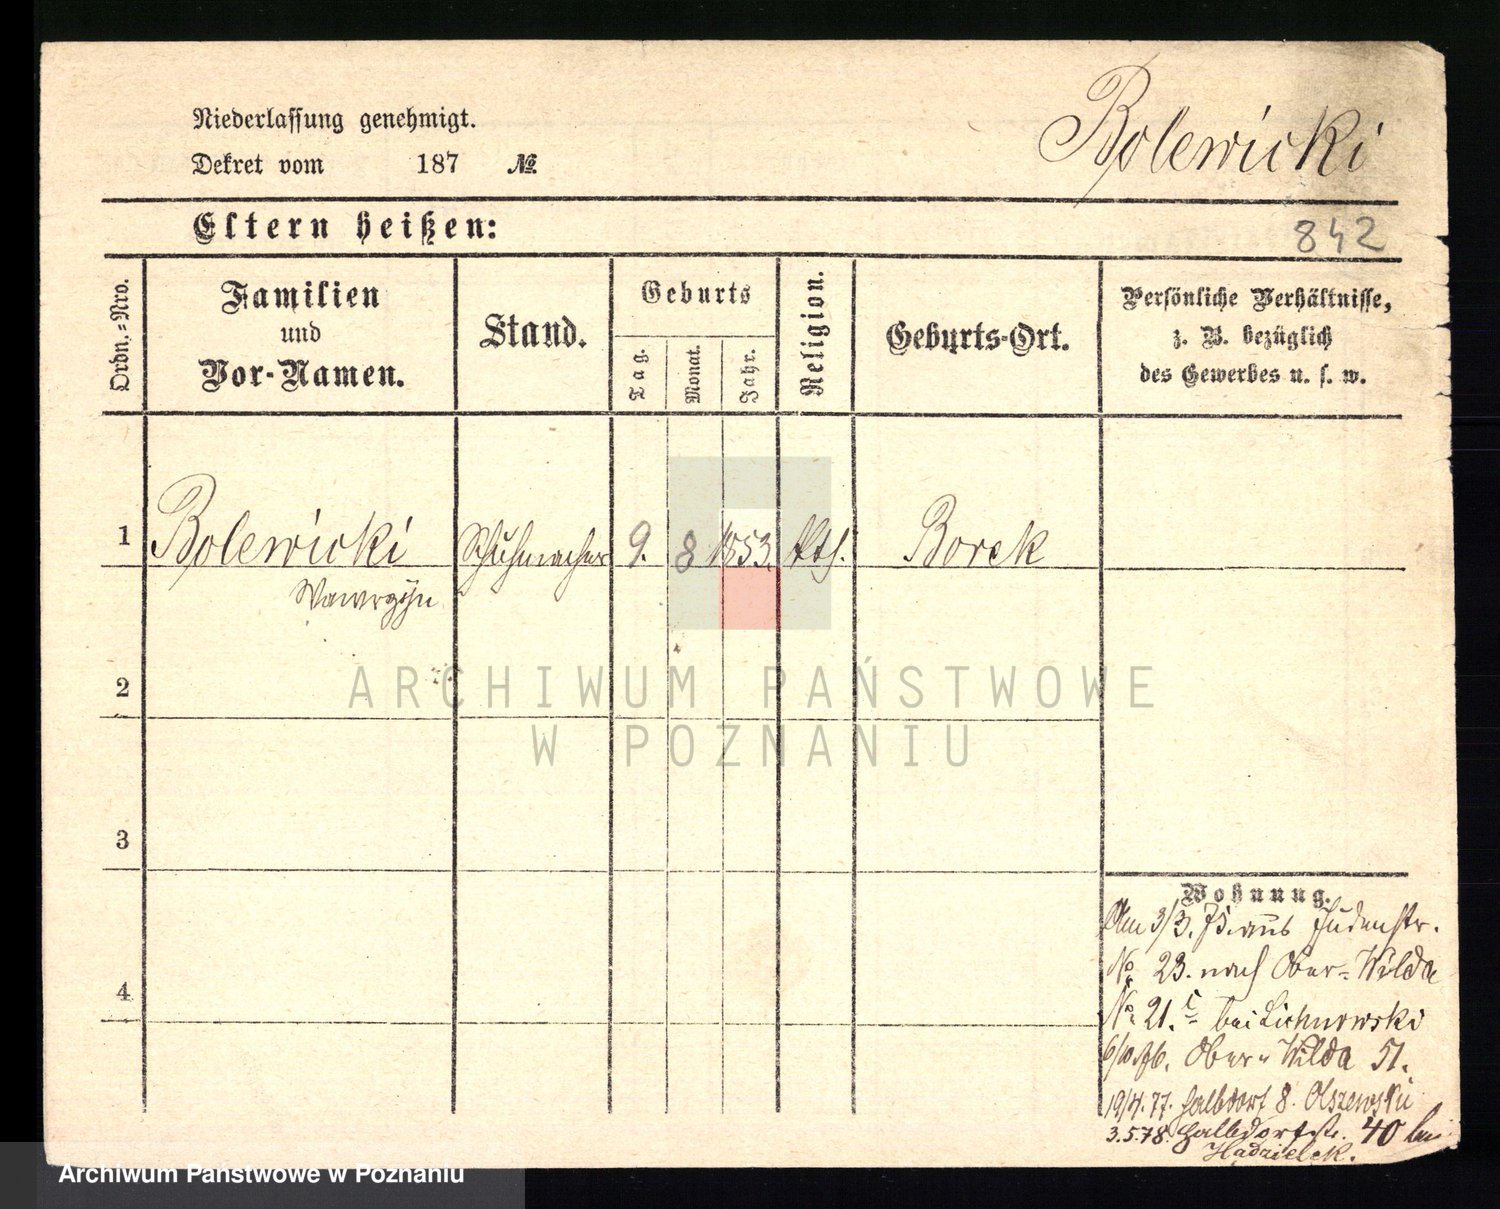 Niederlassung genehmigt.
Bolewicki
Dekret vom 187 №
Eltern heißen:
842
Ordn.-Nro.
Familien
und
Vor-Namen.
Stand.
Geburts
Tag.
Monat.
Jahr.
Religion.
Geburts-Ort.
Persönliche Verhältnisse,
z. B. bezüglich
des Gewerbes u. s. w.
1 Bolewicki Schuhmacher 9. 8 1853. kth. Borek
Wawrzyn
2
ARCHIWUM PAŃSTWOWE
W POZNANIU
3
Wohnung.
Am 3/3. 75. aus Judenstr.
No 23. nach Ober-Wilda
4
No. 21. c bei Lichnowski
6/10.76. Ober-Wilda 51.
19/4.77. Halbdorf 8. Olszewski
3.5.78. Halbdorfstr. 40 bei
Hadzielek.
Archiwum Państwowe w Poznaniu